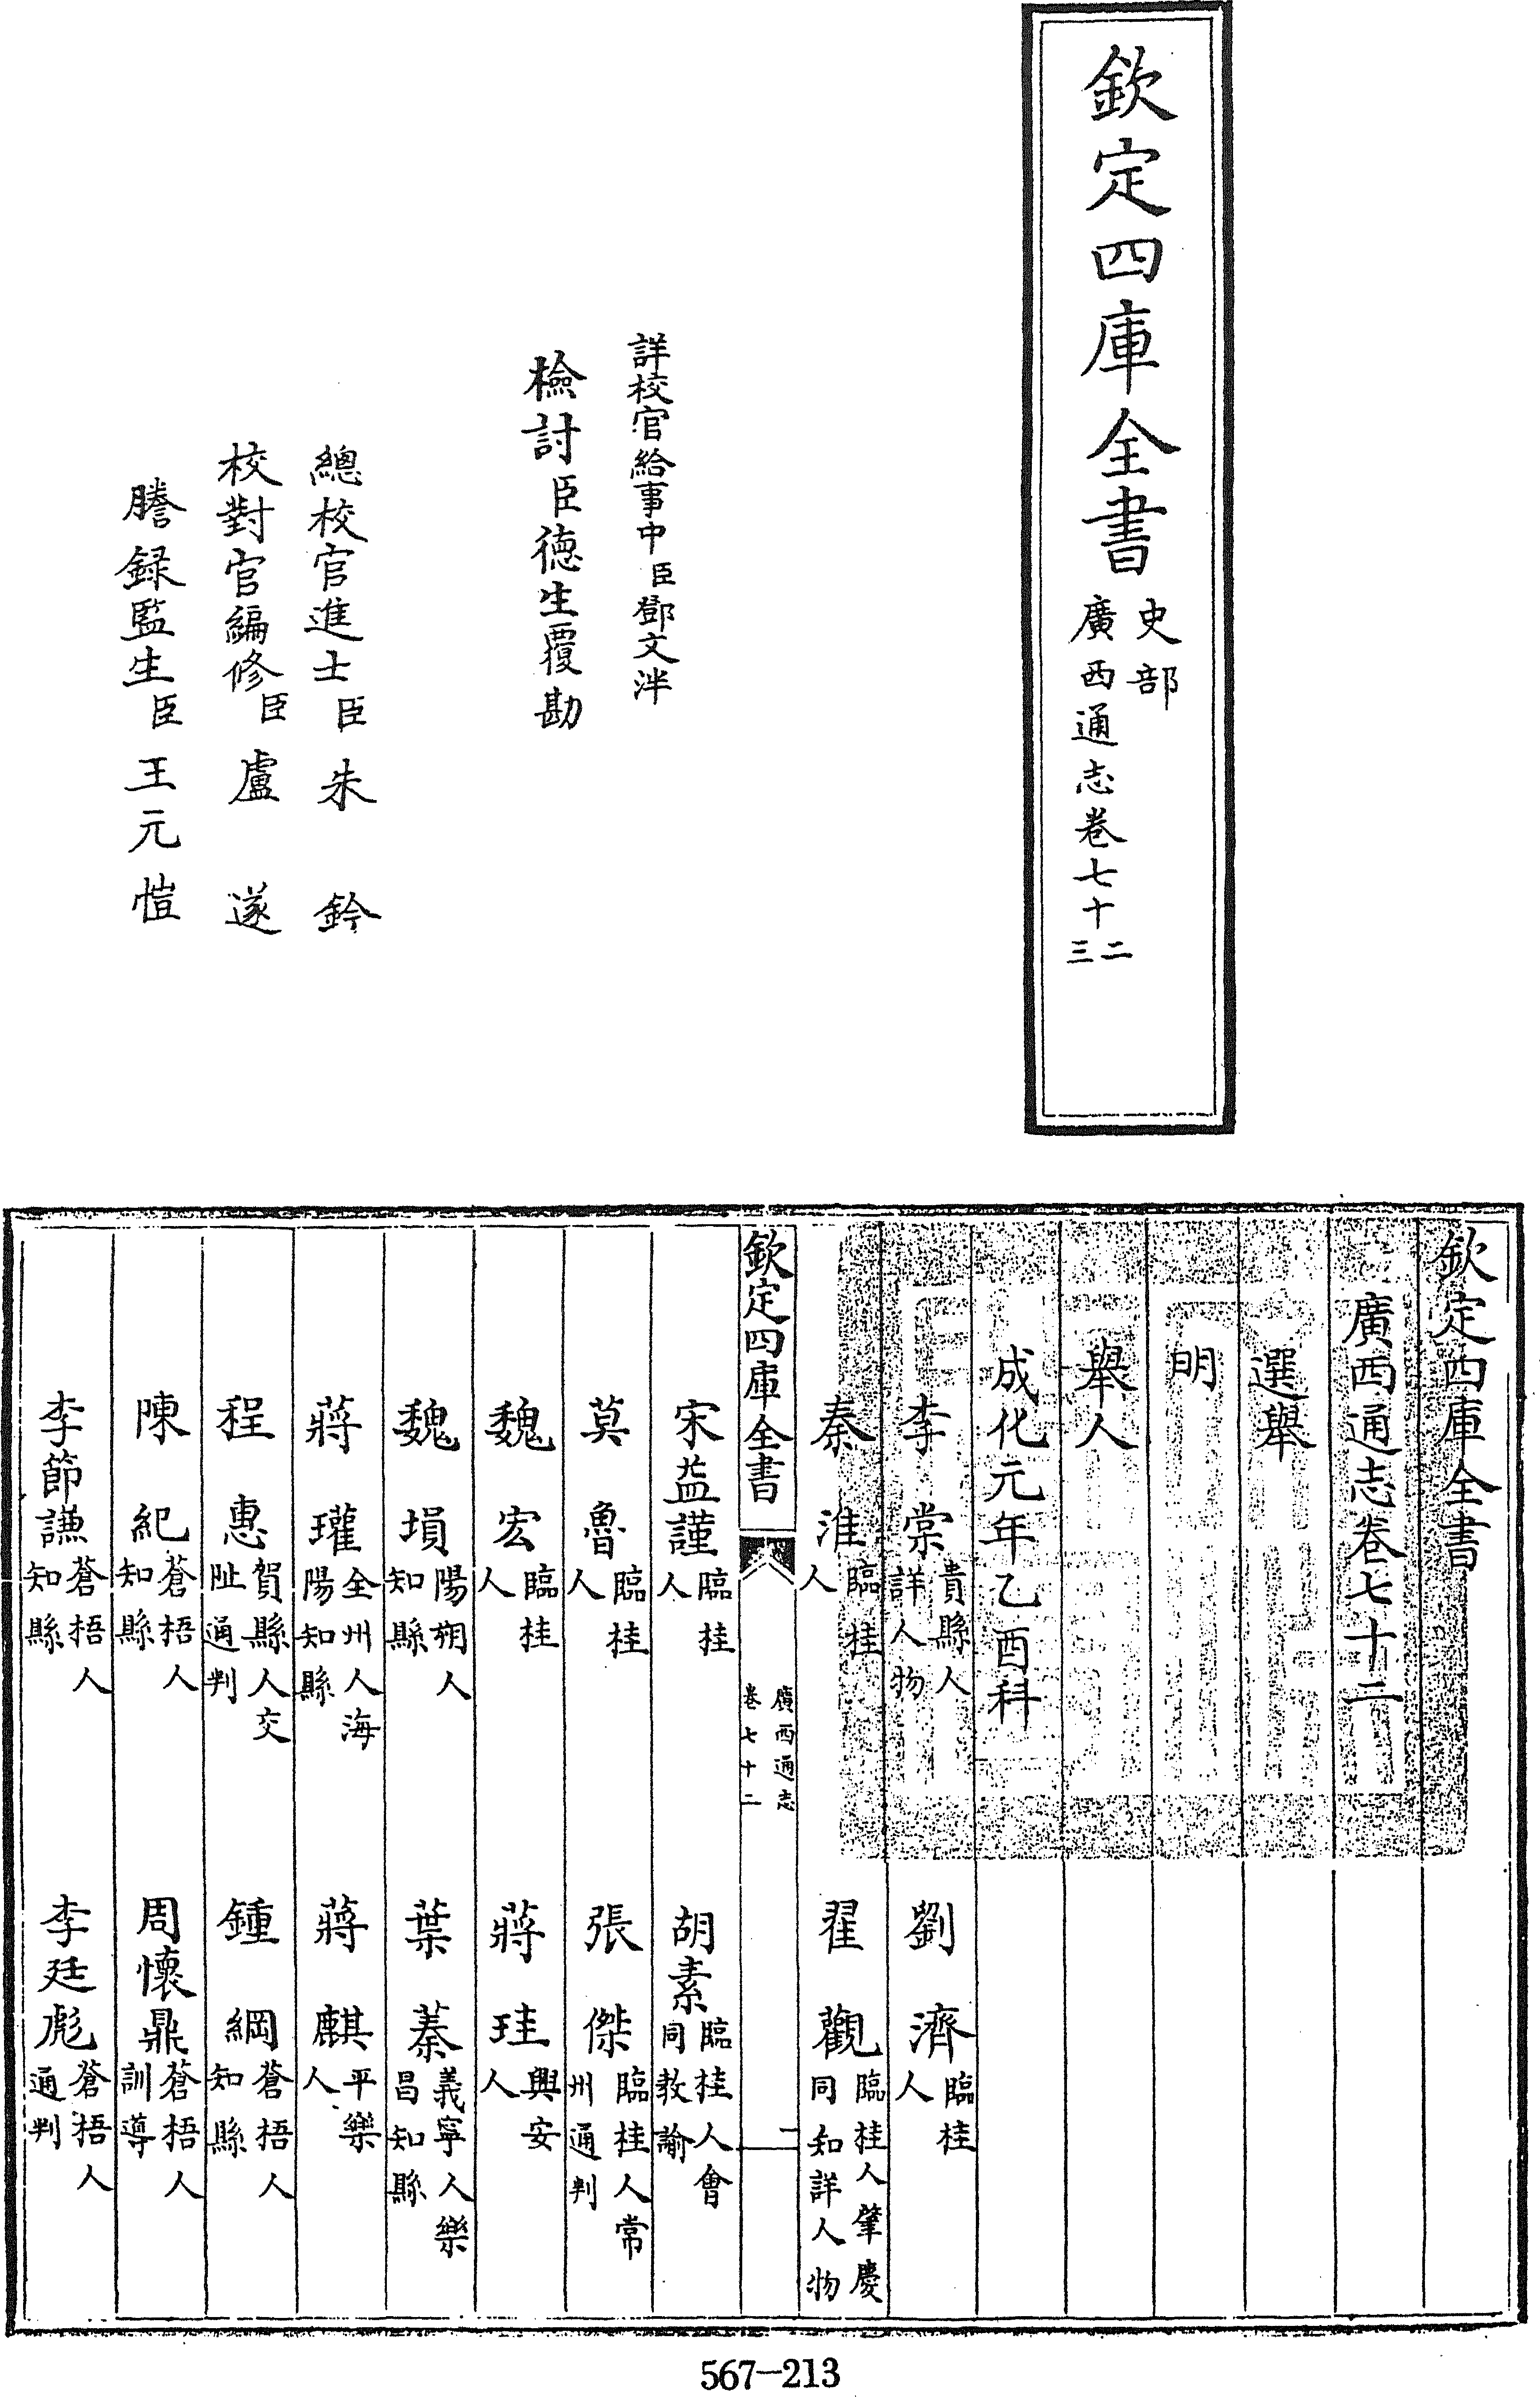 欽定四庫全書
史部
廣西通志卷七十二
三
詳校官給事中臣鄧文泮
檢討臣德生覆勘
總校官進士臣朱鈐
校對官編修臣盧遂
謄録監生臣王元愷
欽定四庫全書
廣西通志卷七十二
選舉
明
舉人
成化元年乙酉科
李棠 貴縣人詳人物 劉濟 臨桂人
秦淮 臨桂人 翟觀 臨桂人肇慶同知詳人物
欽定四庫全書 廣西通志卷七十二 一
宋益謹 臨桂人 胡素 臨桂人會同教諭
莫魯 臨桂人 張傑 臨桂人常州通判
魏宏 臨桂人 蔣珪 興安人
魏塤 陽朔人知縣 葉蓁 義寧人樂昌知縣
蔣瓘 全州人海陽知縣 蔣麒 平樂人
程惠 賀縣人交阯通判 鍾綱 蒼梧人知縣
陳紀 蒼梧人知縣 周懷鼎 蒼梧人訓導
李節謙 蒼梧人知縣 李廷彪 蒼梧人通判
567-213